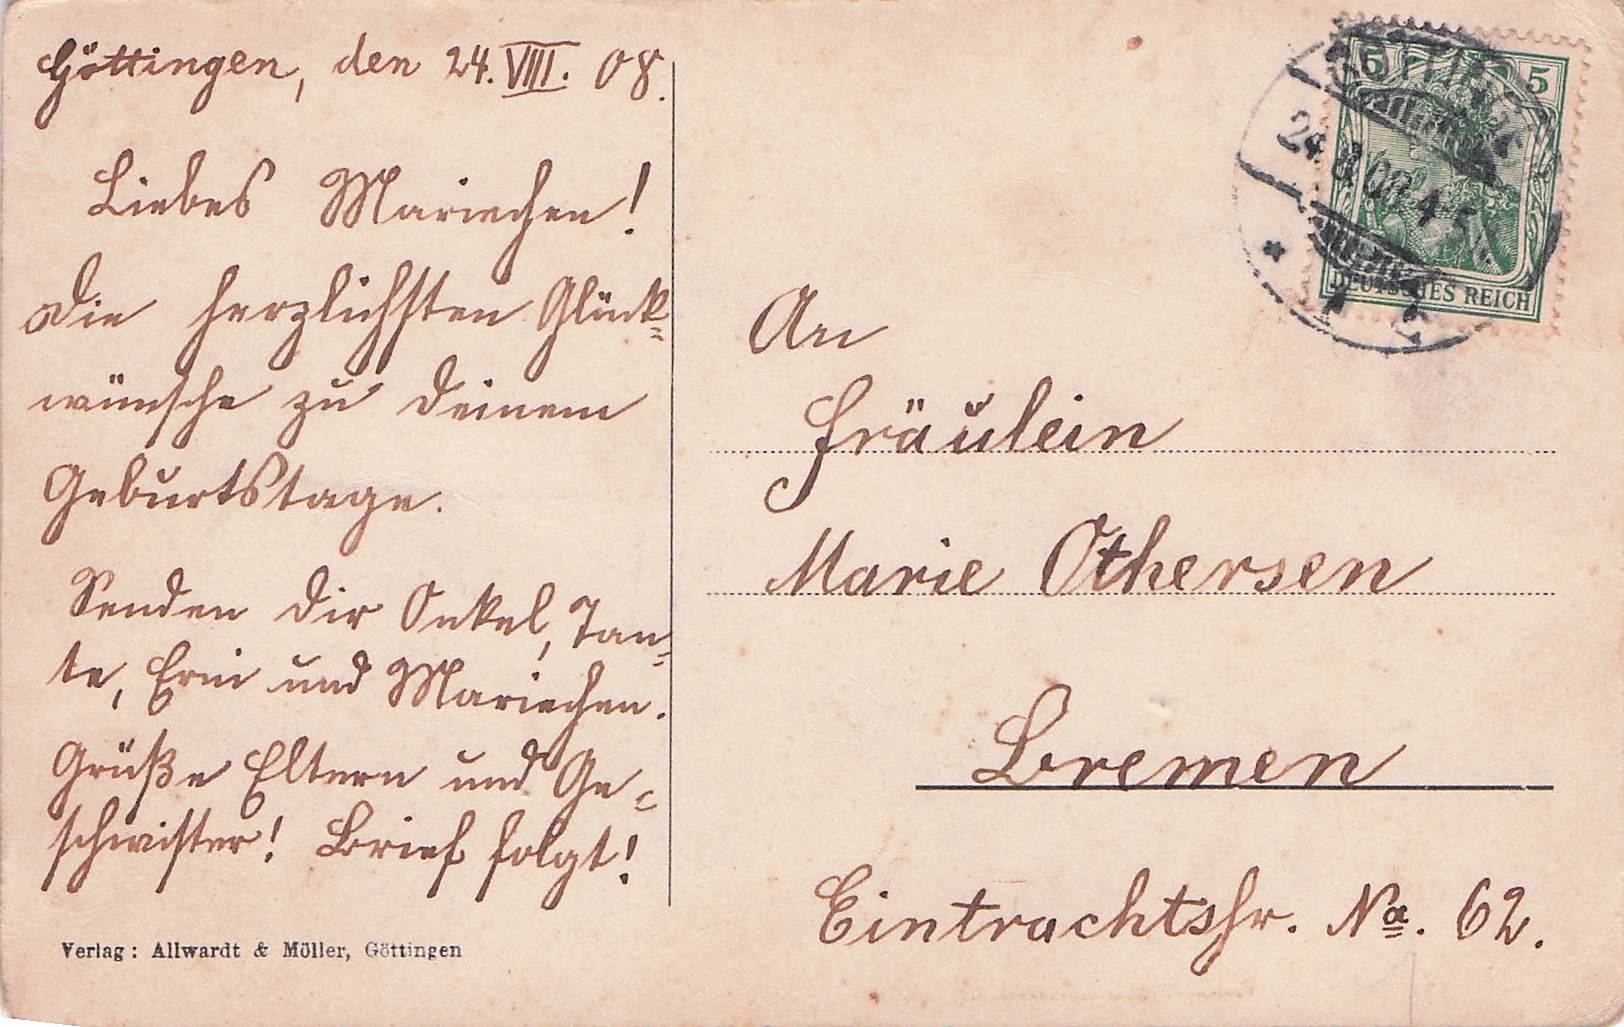 Göttingen, den 24. VIII. 08.
Liebes Mariechen!
Die herzlichsten Glück-
wünsche zu Deinem
Geburtstage.
Senden Dir Onkel, Tan-
te, und Mariechen.
Grüße Eltern und Ge-
schwister! Brief folgt!
Verlag: Allwardt & Möller, Göttingen
5 5
24.8.08 4-5
DEUTSCHES REICH
An
Fräulein
Marie Othersen
Bremen
Eintrachtstr. No. 62.